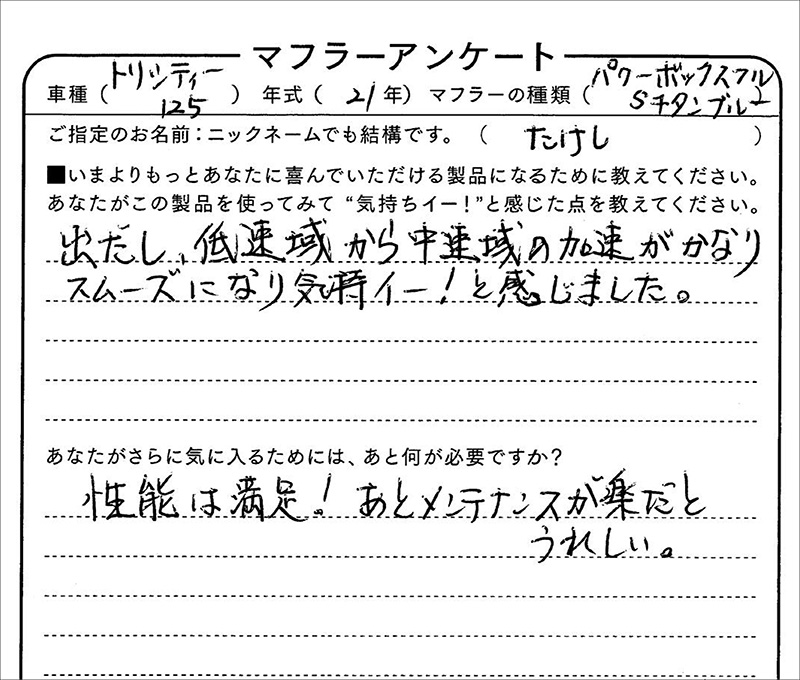 マフラーアンケート
車種（トリシティー 125）年式（21年）マフラーの種類（パワーボックスフル Sチタンブルー）
ご指定のお名前：ニックネームでも結構です。（たけし）
■いまよりもっとあなたに喜んでいただける製品になるために教えてください。
あなたがこの製品を使ってみて“気持ちイー！”と感じた点を教えてください。
出だし、低速域から中速域の加速がかなり
スムーズになり気持イー！と感じました。
あなたがさらに気に入るためには、あと何が必要ですか？
性能は満足！あとメンテナンスが楽だと
うれしい。